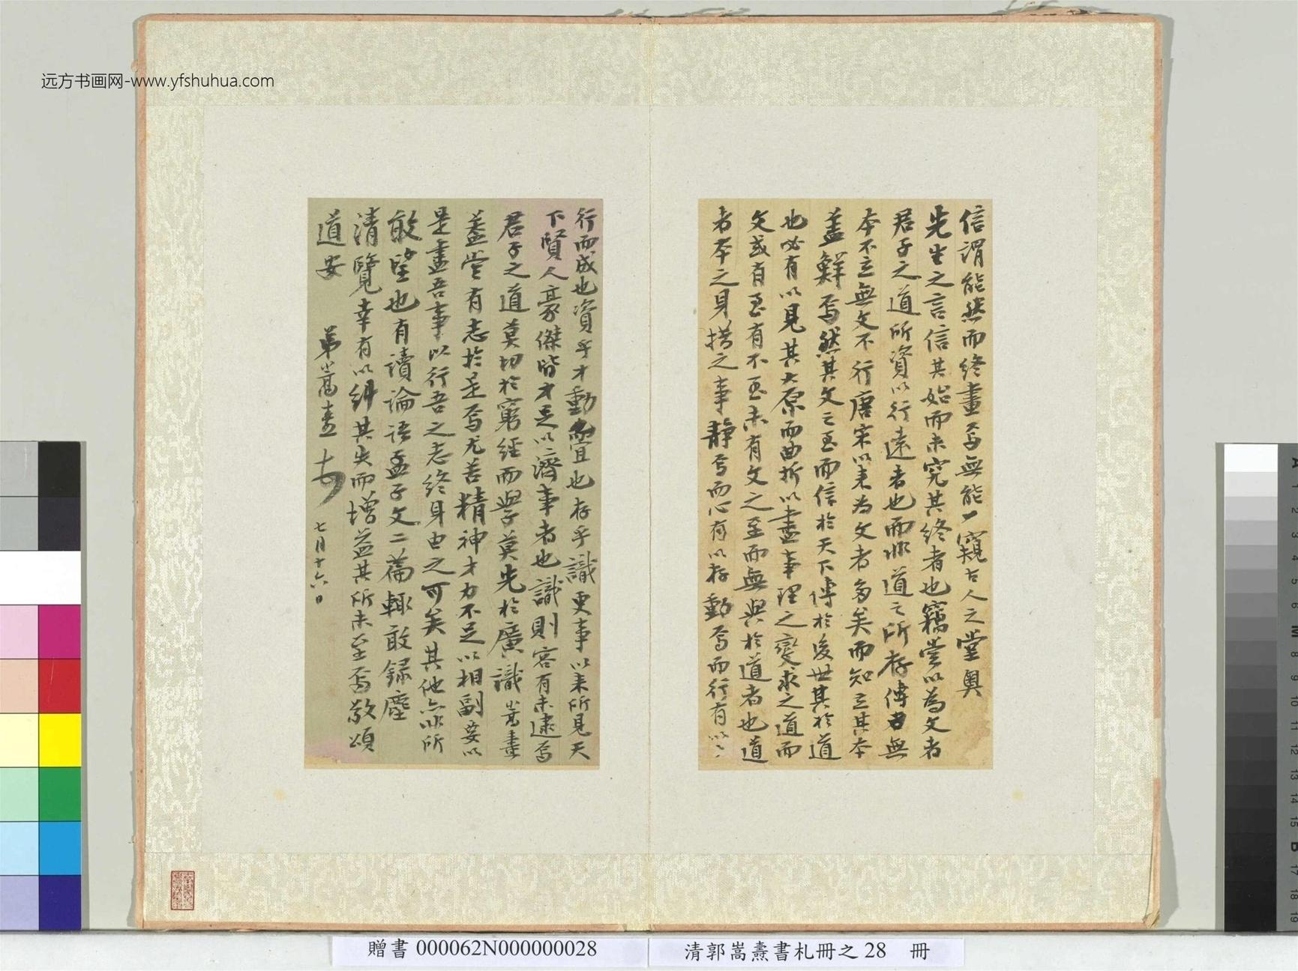 远方书画网-www.yfshuhua.com
信謂能然而終畫焉無能一窺古人之堂奧
先生之言信其始而未究其終者也竊嘗以為文者
君子之道所資以行遠者也而非道之所存傳曰無
本不立無文不行唐宋以来為文者多矣而知立其本
蓋鮮焉然其文之至而信於天下傳於後世其於道
也必有以見其大原而曲折以盡事理之變求之道而
文或有至有不至未有文之至而無與於道者也道
者本之身措之事靜焉而心有以存動焉而行有以
行而成也資乎才動宜也存乎識更事以来所見天
下賢人豪傑皆才足以濟事者也識則容有未逮焉
君子之道莫切於窮經而學莫先於廣識嵩燾
蓋嘗有志於是焉尤苦精神才力不足以相副妄以
是畫吾事以行吾之志終身由之可矣其他亦非所
敢望也有讀論語孟子文二篇輒敢錄塵
清覽幸有以糾其失而增益其所未至焉敬頌
道安 弟嵩燾 七月十六日
贈書 000062N000000028
清郭嵩燾書札冊之 28 冊